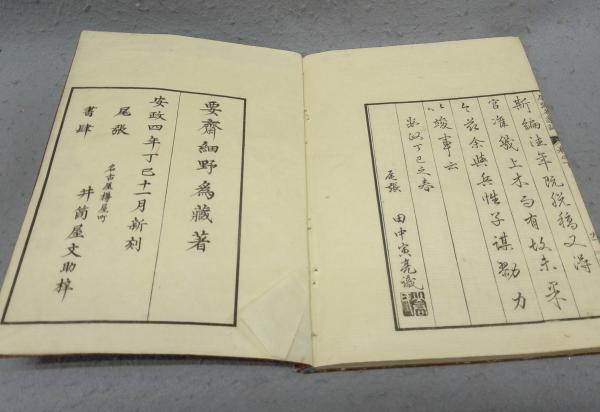 新編注年既脱稿又得
官准幾上木而有故未果
今茲余與兵性子謀勠力
以竣事云
安政丁巳之春
尾張 田中寅亮識
要齋細野為藏著
安政四年丁巳十一月新刻
尾張 名古屋樽屋町
書肆 井筒屋文助梓